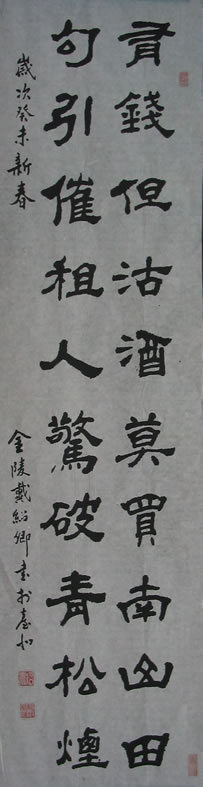 有錢但沽酒莫買南山田
句引催租人驚破青松煙
歲次癸未新春
金陵戴紹卿書於臺